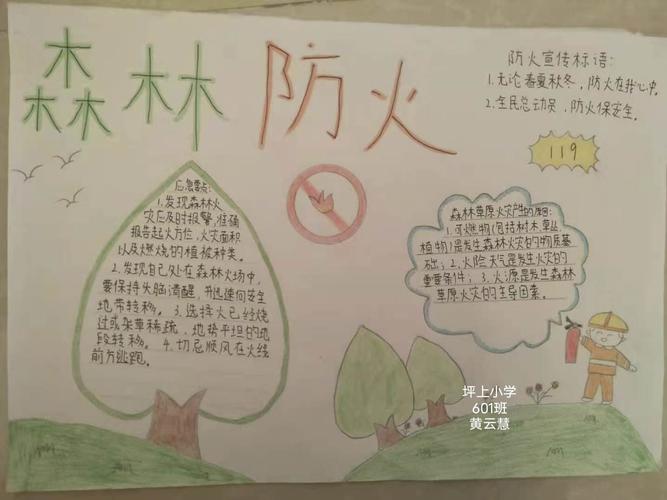 森林防火
防火宣传标语：
1.无论春夏秋冬，防火在我心中。
2.全民总动员，防火保安全。
119
应急要点：
1.发现森林火
灾应及时报警，准确
报告起火方位，火灾面积
以及燃烧的植被种类。
2.发现自己处在森林火场中，
要保持头脑清醒，并迅速向安全
地带转移。3.选择火已经烧
过或杂草稀疏，地势平坦的地
段转移。4.切忌顺风在火线
前方逃跑。
森林草原火灾产生的原因：
1.可燃物（包括树木、草丛
植物）是发生森林火灾的物质基
础；2.火险天气是发生火灾的
重要条件；3.火源是发生森林
草原火灾的主导因素。
坪上小学
601班
黄云慧